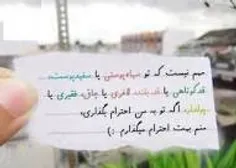 مهم نیست که تو سیاه پوستی یا سفید پوست،
قد کوتاهی یا قد بلند، لاغری یا چاق، فقیری یا
پولدار، اگه تو به من احترام بگذاری،
منم بهت احترام میگذارم. :)